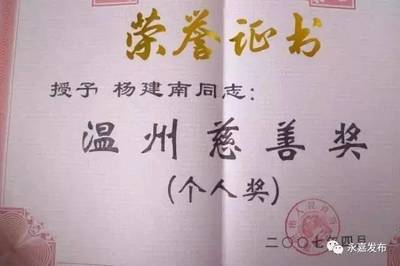 荣誉证书
授予 杨建南同志:
温州慈善奖
(个人奖)
二〇〇七年四月
永嘉发布